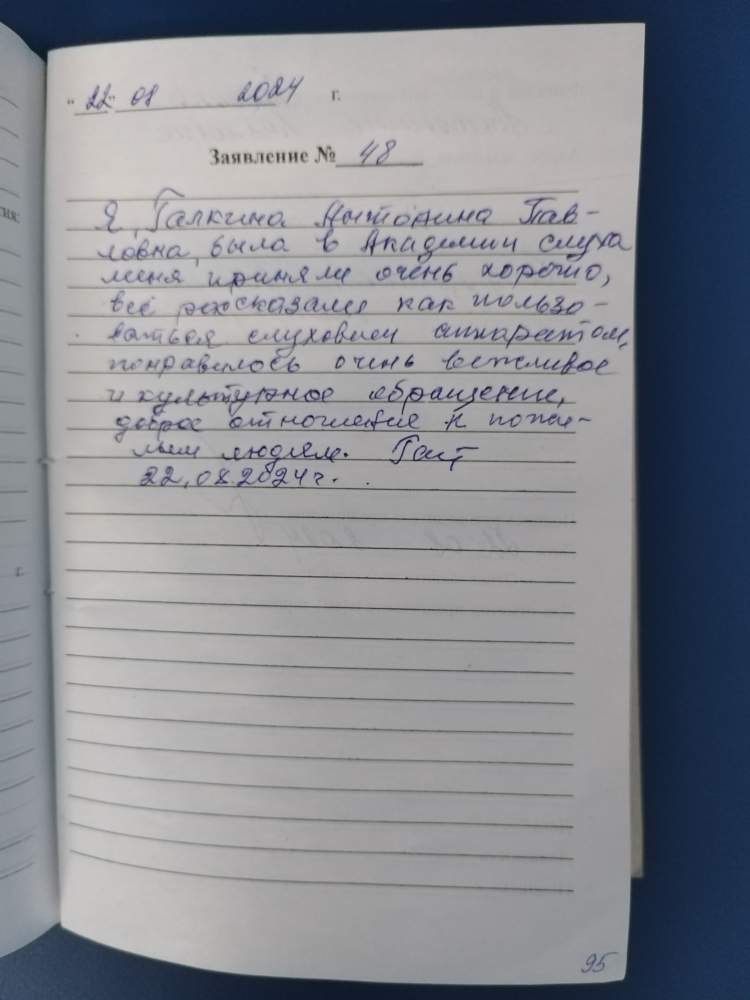 "22" 08 2024 г.
Заявление № 48
Я, Галкина Антонина Пав-
ловна, была в Академии слуха
меня приняли очень хорошо,
всё рассказали как пользо-
ваться слуховым аппаратом,
понравилось очень вежливое
и культурное обращение,
доброе отношение к пожи-
лым людям.
22.08.2024г.
г.
95